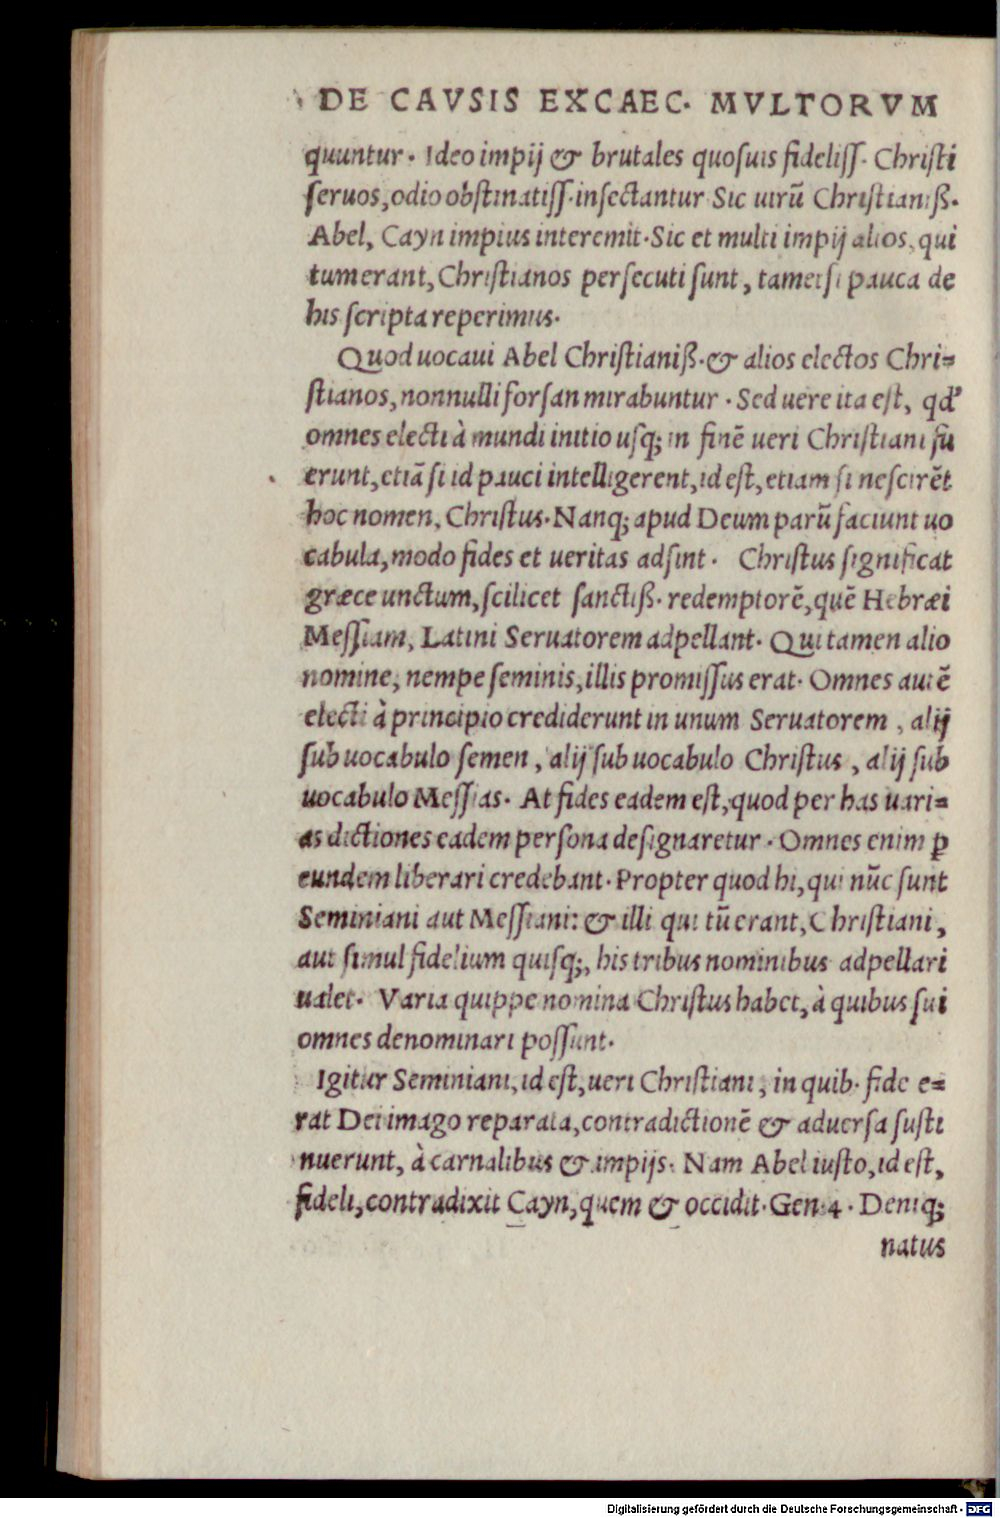 DE CAVSIS EXCAEC. MVLTORVM
quuntur. Ideo impij & brutales quosuis fideliss. Christi
seruos, odio obstinatiss. insectantur Sic uirũ Christianiß.
Abel, Cayn impius interemit. Sic et multi impij alios, qui
tum erant, Christianos persecuti sunt, tametsi pauca de
his scripta reperimus.
Quod uocaui Abel Christianiß. & alios electos Chri=
stianos, nonnulli forsan mirabuntur. Sed uere ita est, qd'
omnes electi à mundi initio usq; in finẽ ueri Christiani fu
erunt, etiã si id pauci intelligerent, id est, etiam si nescirẽt
hoc nomen, Christus. Nanq; apud Deum parũ faciunt uo
cabula, modo fides et ueritas adsint. Christus significat
græce unctum, scilicet sanctiß. redemptorẽ, quẽ Hebræi
Messiam, Latini Seruatorem adpellant. Qui tamen alio
nomine, nempe seminis, illis promissus erat. Omnes autẽ
electi à principio crediderunt in unum Seruatorem, alij
sub uocabulo semen, alij sub uocabulo Christus, alij sub
uocabulo Messias. At fides eadem est, quod per has uari=
as dictiones eadem persona designaretur. Omnes enim ꝑ
eundem liberari credebant. Propter quod hi, qui nũc sunt
Seminiani aut Messiani: & illi qui tũ erant, Christiani,
aut simul fidelium quisq;, his tribus nominibus adpellari
ualet. Varia quippe nomina Christus habet, à quibus sui
omnes denominari possunt.
Igitur Seminiani, id est, ueri Christiani, in quib. fide e=
rat Dei imago reparata, contradictionẽ & aduersa susti
nuerunt, à carnalibus & impijs. Nam Abel iusto, id est,
fideli, contradixit Cayn, quem & occidit. Gen. 4. Deniq;
natus
Digitalisierung gefördert durch die Deutsche Forschungsgemeinschaft - DFG